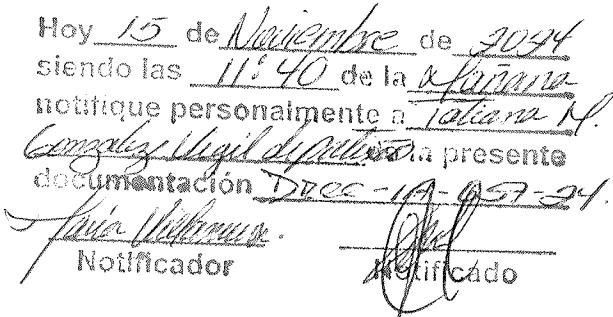 Hoy 15 de Noviembre de 2024
siendo las 11:40 de la Mañana
notifique personalmente a Tatiana M.
Gonzalez Vigil de la presente
documentación
María
Notificador Notificado